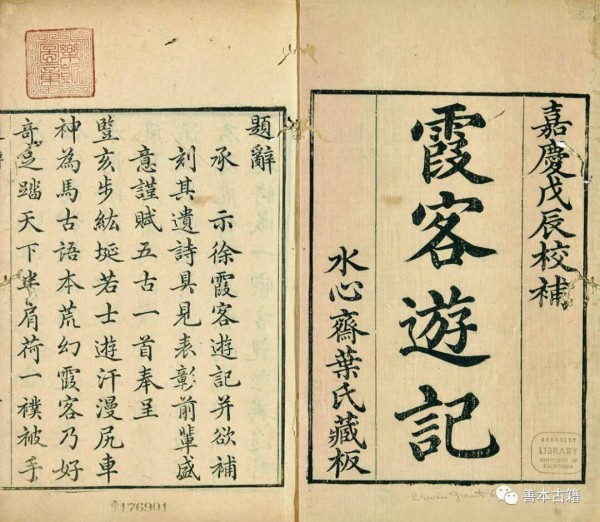 嘉慶戊辰校補
霞客遊記
水心齋葉氏藏板
題辭
承　示徐霞客遊記并欲補
刻其遺詩具見表彰前輩盛
意謹賦五古一首奉呈
豎亥步紘埏若士遊汗漫尻車
神為馬古語本荒幻霞客乃好
奇足踏天下半肩荷一襆被手
176901
BERKELEY
LIBRARY
UNIVERSITY OF
CALIFORNIA
善本古籍